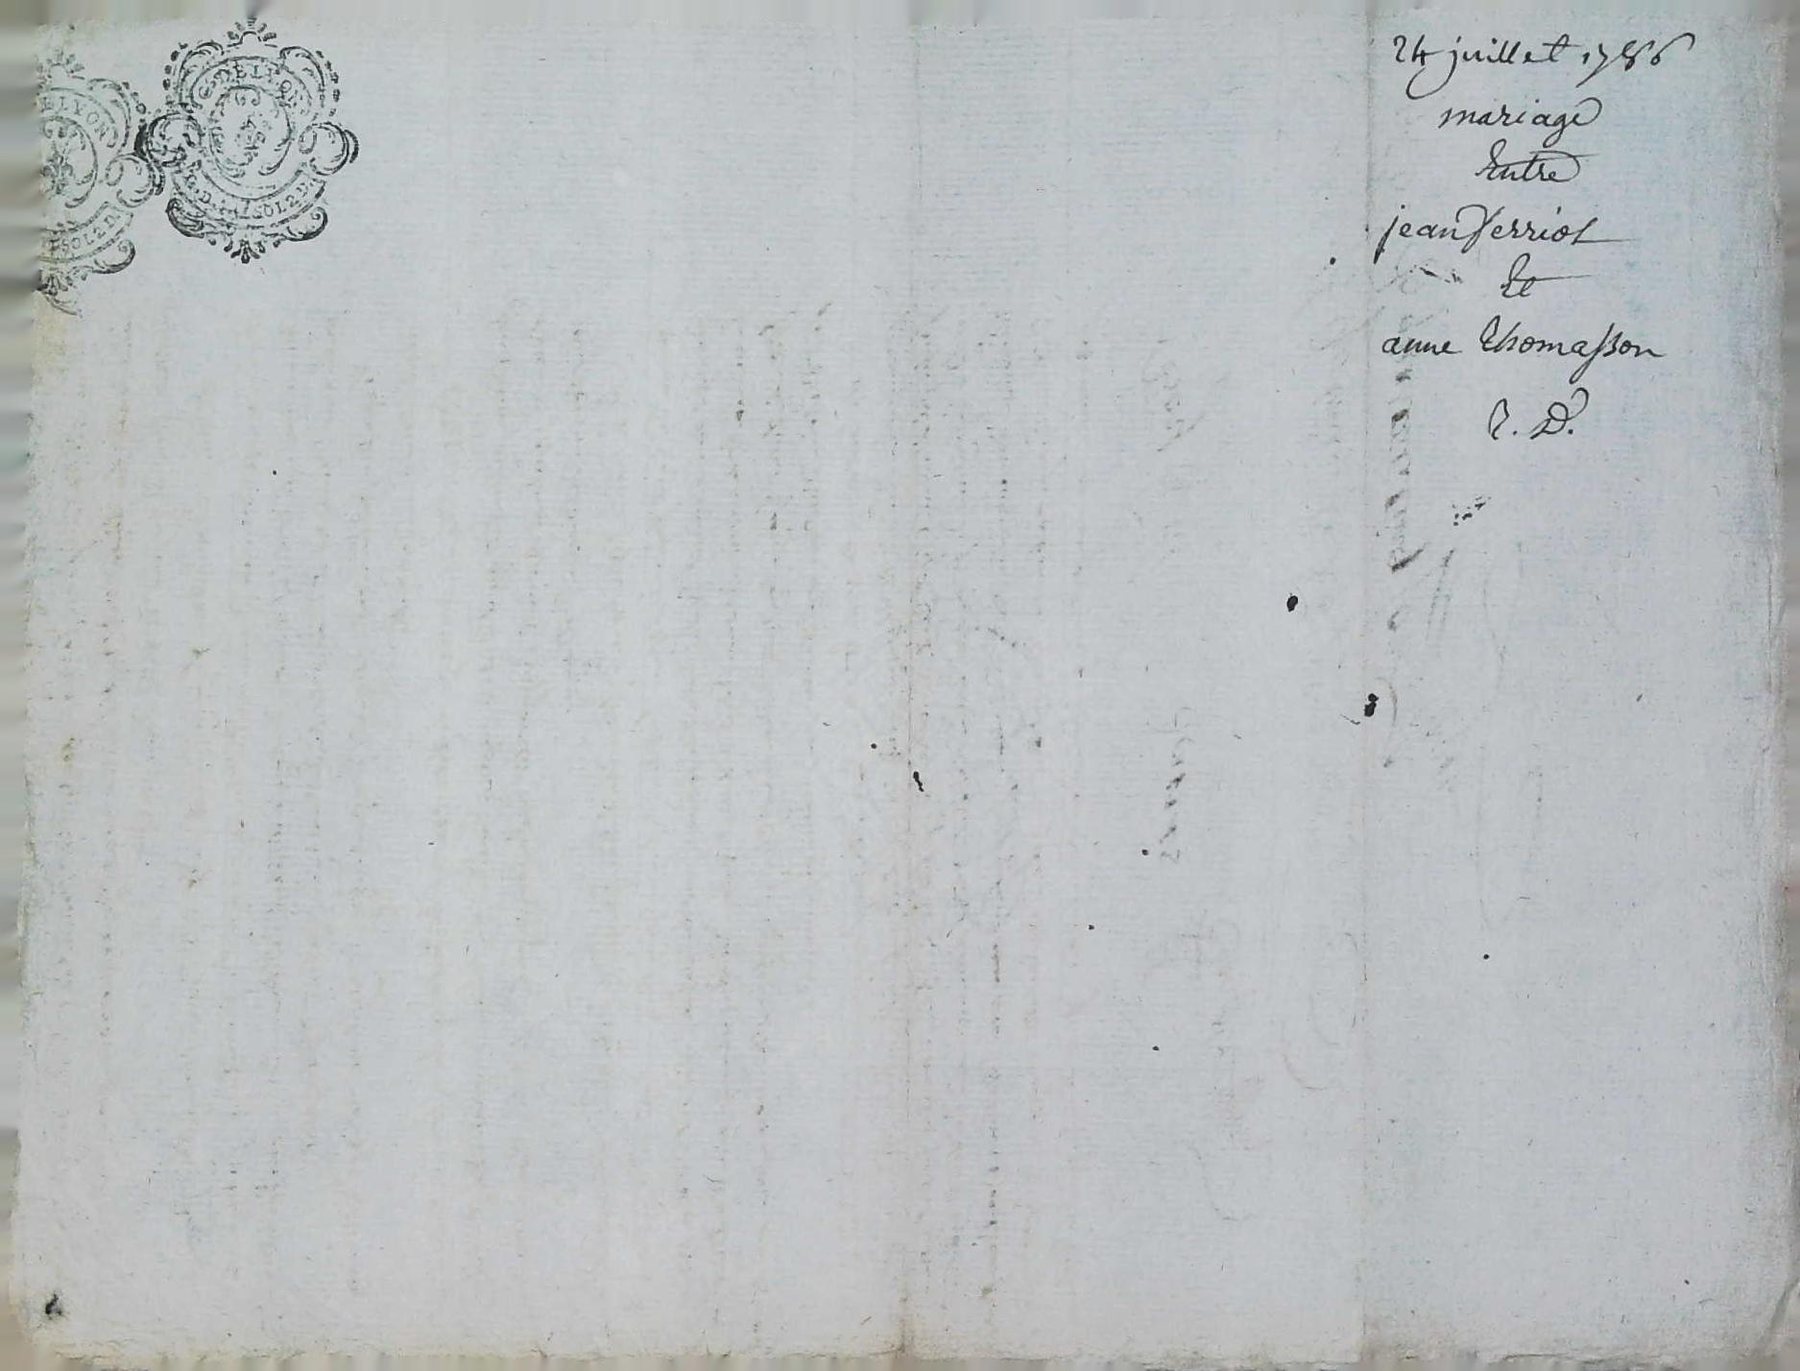 G. DE LYON
24 juillet 1786
mariage
Entre
jean Ferriot
Et
anne Thomasson
R. D.